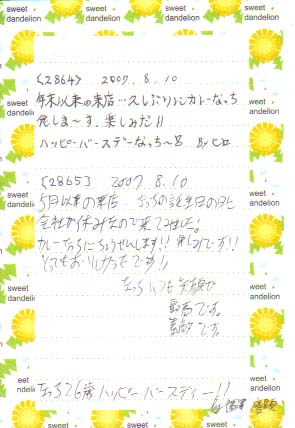 sweet dandelion
sweet dandelion
sweet dandelion
[2864] 2007. 8. 10
年末以来の来店…久しぶりにカレーなっち
発しま〜す。楽しみだ!!
ハッピーバースデーなっち〜 By ヒロ
sweet dandelion
sweet dandelion
[2865] 2007. 8. 10
5月以来の来店 なっちの誕生日の日に
会社が休みなので来てみました!
カレーなっちにちょうせんします!! 楽しみです!!
とってもおいしかったです!!
sweet dandelion
sweet dandelion
なっちいつも笑顔が
最高です。
素敵です。
sweet dandelion
sweet dandelion
なっち26歳ハッピーバースディー!!
by
sweet dandelion
sweet dandelion
sweet dandelion